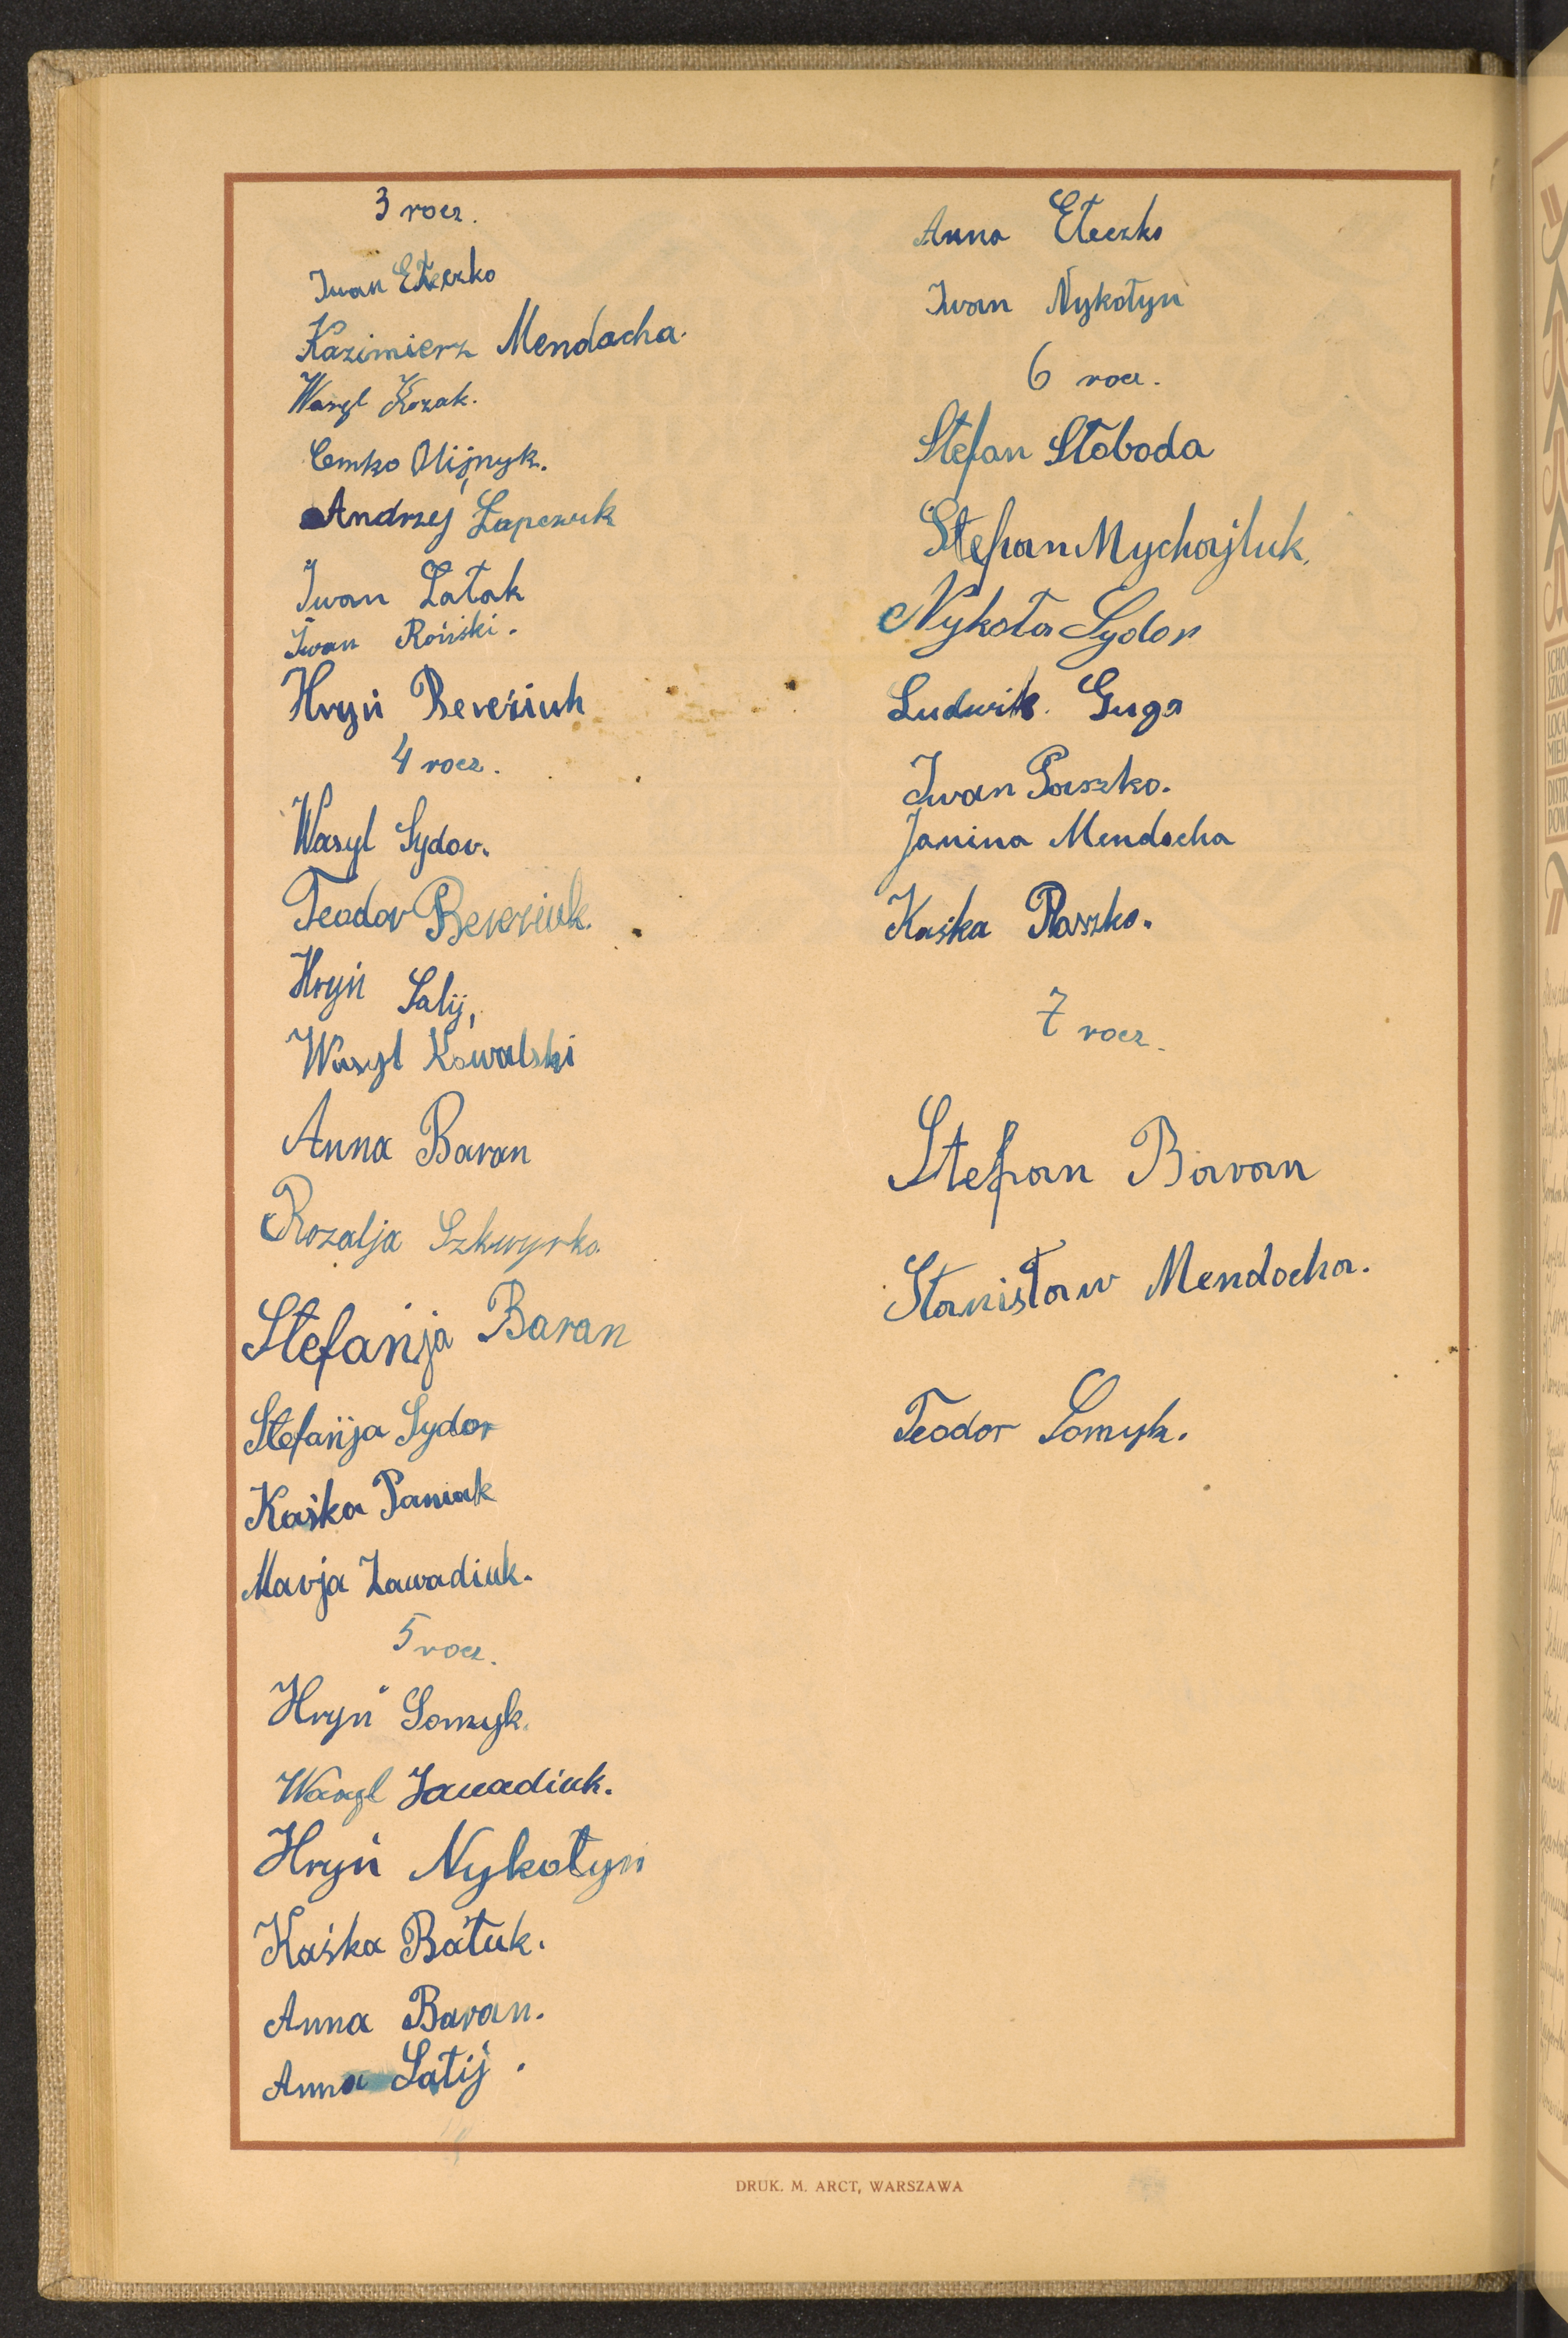 3 rocz.
Iwan Ełeczko
Kazimierz Mendacha.
Wasyl Kozak.
Cemko Olijnyk.
Andrzej Łapczuk
Iwan Łatak
Iwan Roński.
Hryń Bereziuk
4 rocz.
Wasyl Sydor.
Teodor Bereziuk.
Hryń Salij,
Wasyl Kowalski
Anna Baran
Rozalja Szkwyrko
Stefanja Baran
Stefanja Sydor
Kaśka Paniak
Marja Zawadiuk.
5 rocz.
Hryń Somyk.
Wasyl Zawadiuk.
Hryń Nykołyn
Kaśka Batuk.
Anna Baran.
Anna Salij.
Anna Ełeczko
Iwan Nykołyn
6 rocz.
Stefan Słoboda
Stefan Mychajluk.
Nykoła Sydor
Ludwik Guga
Iwan Paszko.
Janina Mendocha
Kaśka Paszko.
7 rocz.
Stefan Baran
Stanisław Mendocha.
Teodor Somyk.
DRUK. M. ARCT, WARSZAWA